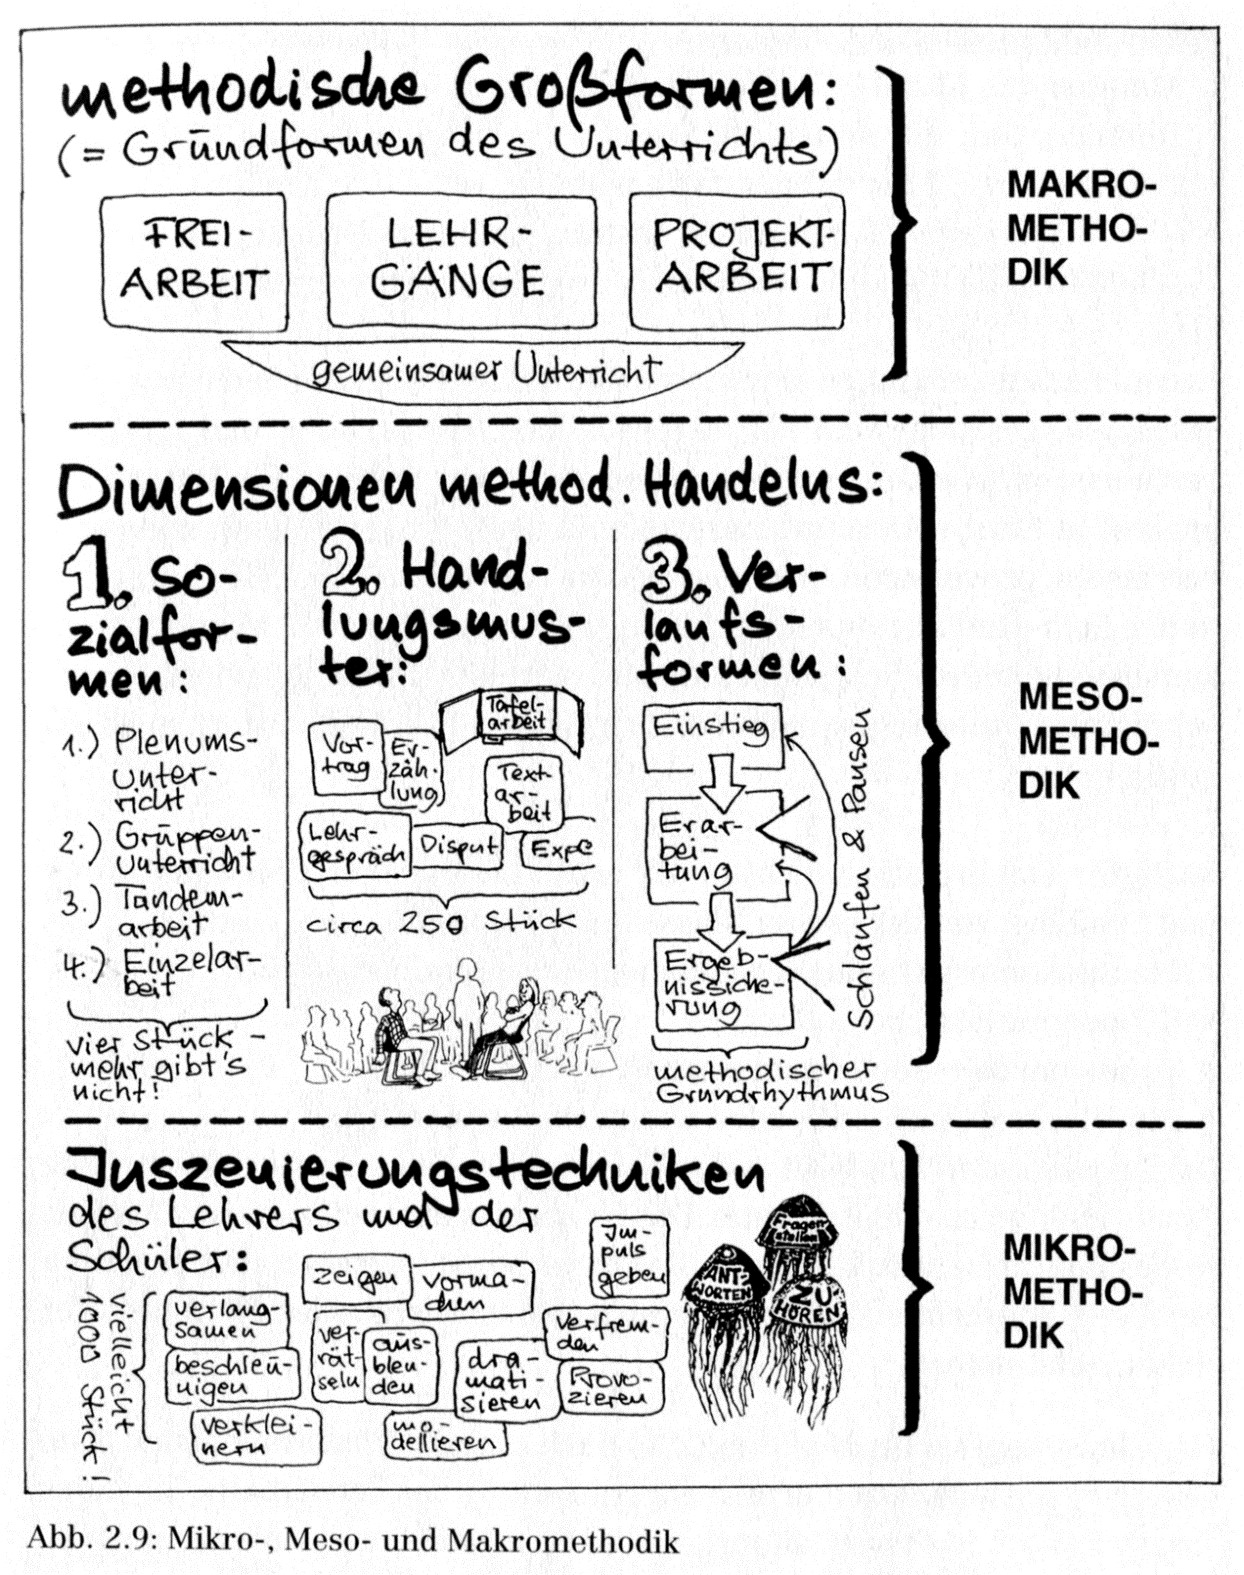 methodische Großformen:
(= Grundformen des Unterrichts)
FREI-
ARBEIT
LEHR-
GÄNGE
PROJEKT-
ARBEIT
gemeinsamer Unterricht
MAKRO-
METHO-
DIK
Dimensionen method. Handelns:
1. So-
zialfor-
men:
1.) Plenums-
unter-
richt
2.) Gruppen-
unterricht
3.) Tandem-
arbeit
4.) Einzelar-
beit
vier Stück -
mehr gibt's
nicht!
2. Hand-
lungsmus-
ter:
Tafel-
arbeit
Vor-
trag
Er-
zäh-
lung
Text
ar-
beit
Lehr-
gespräch
Disput
Expe
circa 250 Stück
3. Ver-
laufs-
formen:
Einstieg
Erar-
bei-
tung
Ergeb-
nissiche-
rung
Schlaufen & Pausen
methodischer
Grundrhythmus
MESO-
METHO-
DIK
Inszenierungstechniken
des Lehrers und der
Schüler:
vielleicht
1000 Stück!
verlang-
samen
beschleu-
nigen
verklei-
nern
zeigen
vorma-
chen
ver-
rät-
seln
aus-
blen-
den
mo-
dellieren
dra-
mati-
sieren
Im-
puls
geben
verfrem-
den
Provo-
zieren
Fragen
stellen
ANT-
WORTEN
ZU
HÖREN
MIKRO-
METHO-
DIK
Abb. 2.9: Mikro-, Meso- und Makromethodik